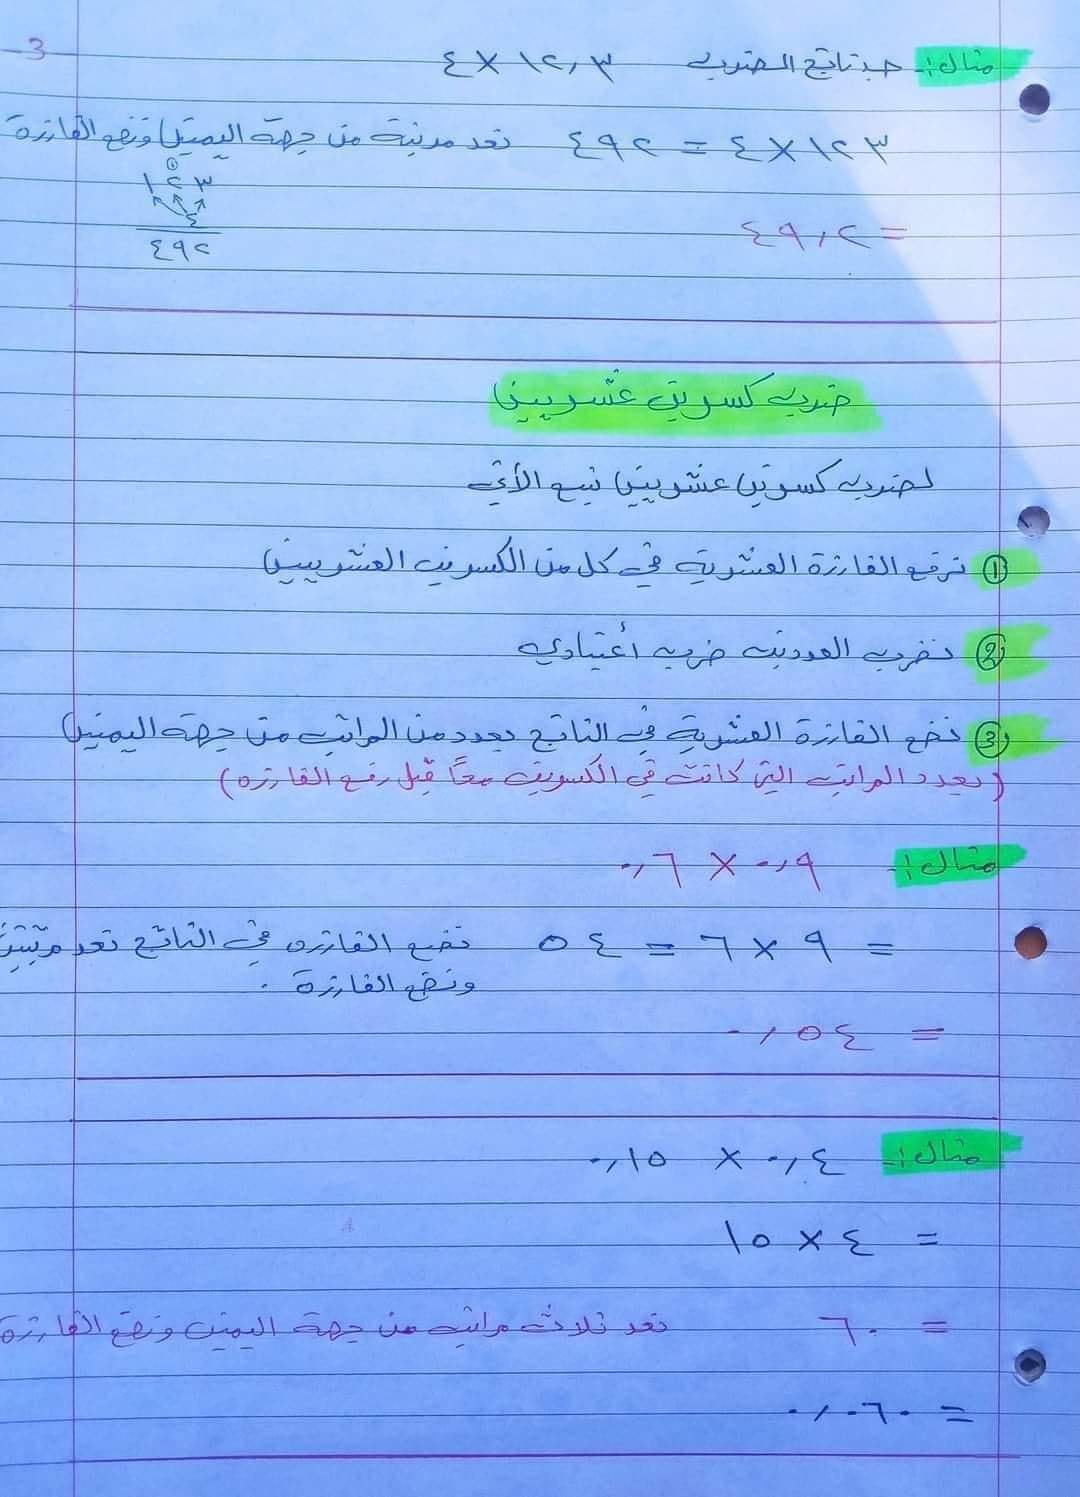 3
مثال:- جد ناتج الضرب ١٢,٣ × ٤
١٢٣ × ٤ = ٤٩٢ نعد مرتبة من جهة اليمين ونضع الفارزة
١
١٢٣
٤
٤٩٢
= ٤٩,٢
ضرب كسرين عشريين
لضرب كسرين عشريين نتبع الأتي
① نرفع الفارزة العشرية في كل من الكسرين العشريين
② نضرب العددين ضرب أعتيادي
③ نضع الفارزة العشرية في الناتج بعدد من المراتب من جهة اليمين
(بعدد المراتب التي كانت في الكسرين معاً قبل رفع الفارزه)
مثال:- ٠,٩ × ٠,٦
= ٩ × ٦ = ٥٤ نضع الفارزه في الناتج نعد مرتبتين
ونضع الفارزة .
= ٠,٥٤
مثال:- ٠,٤ × ٠,١٥
= ٤ × ١٥
= ٦٠ نعد ثلاث مراتب من جهة اليمين ونضع الفارزة
= ٠,٠٦٠